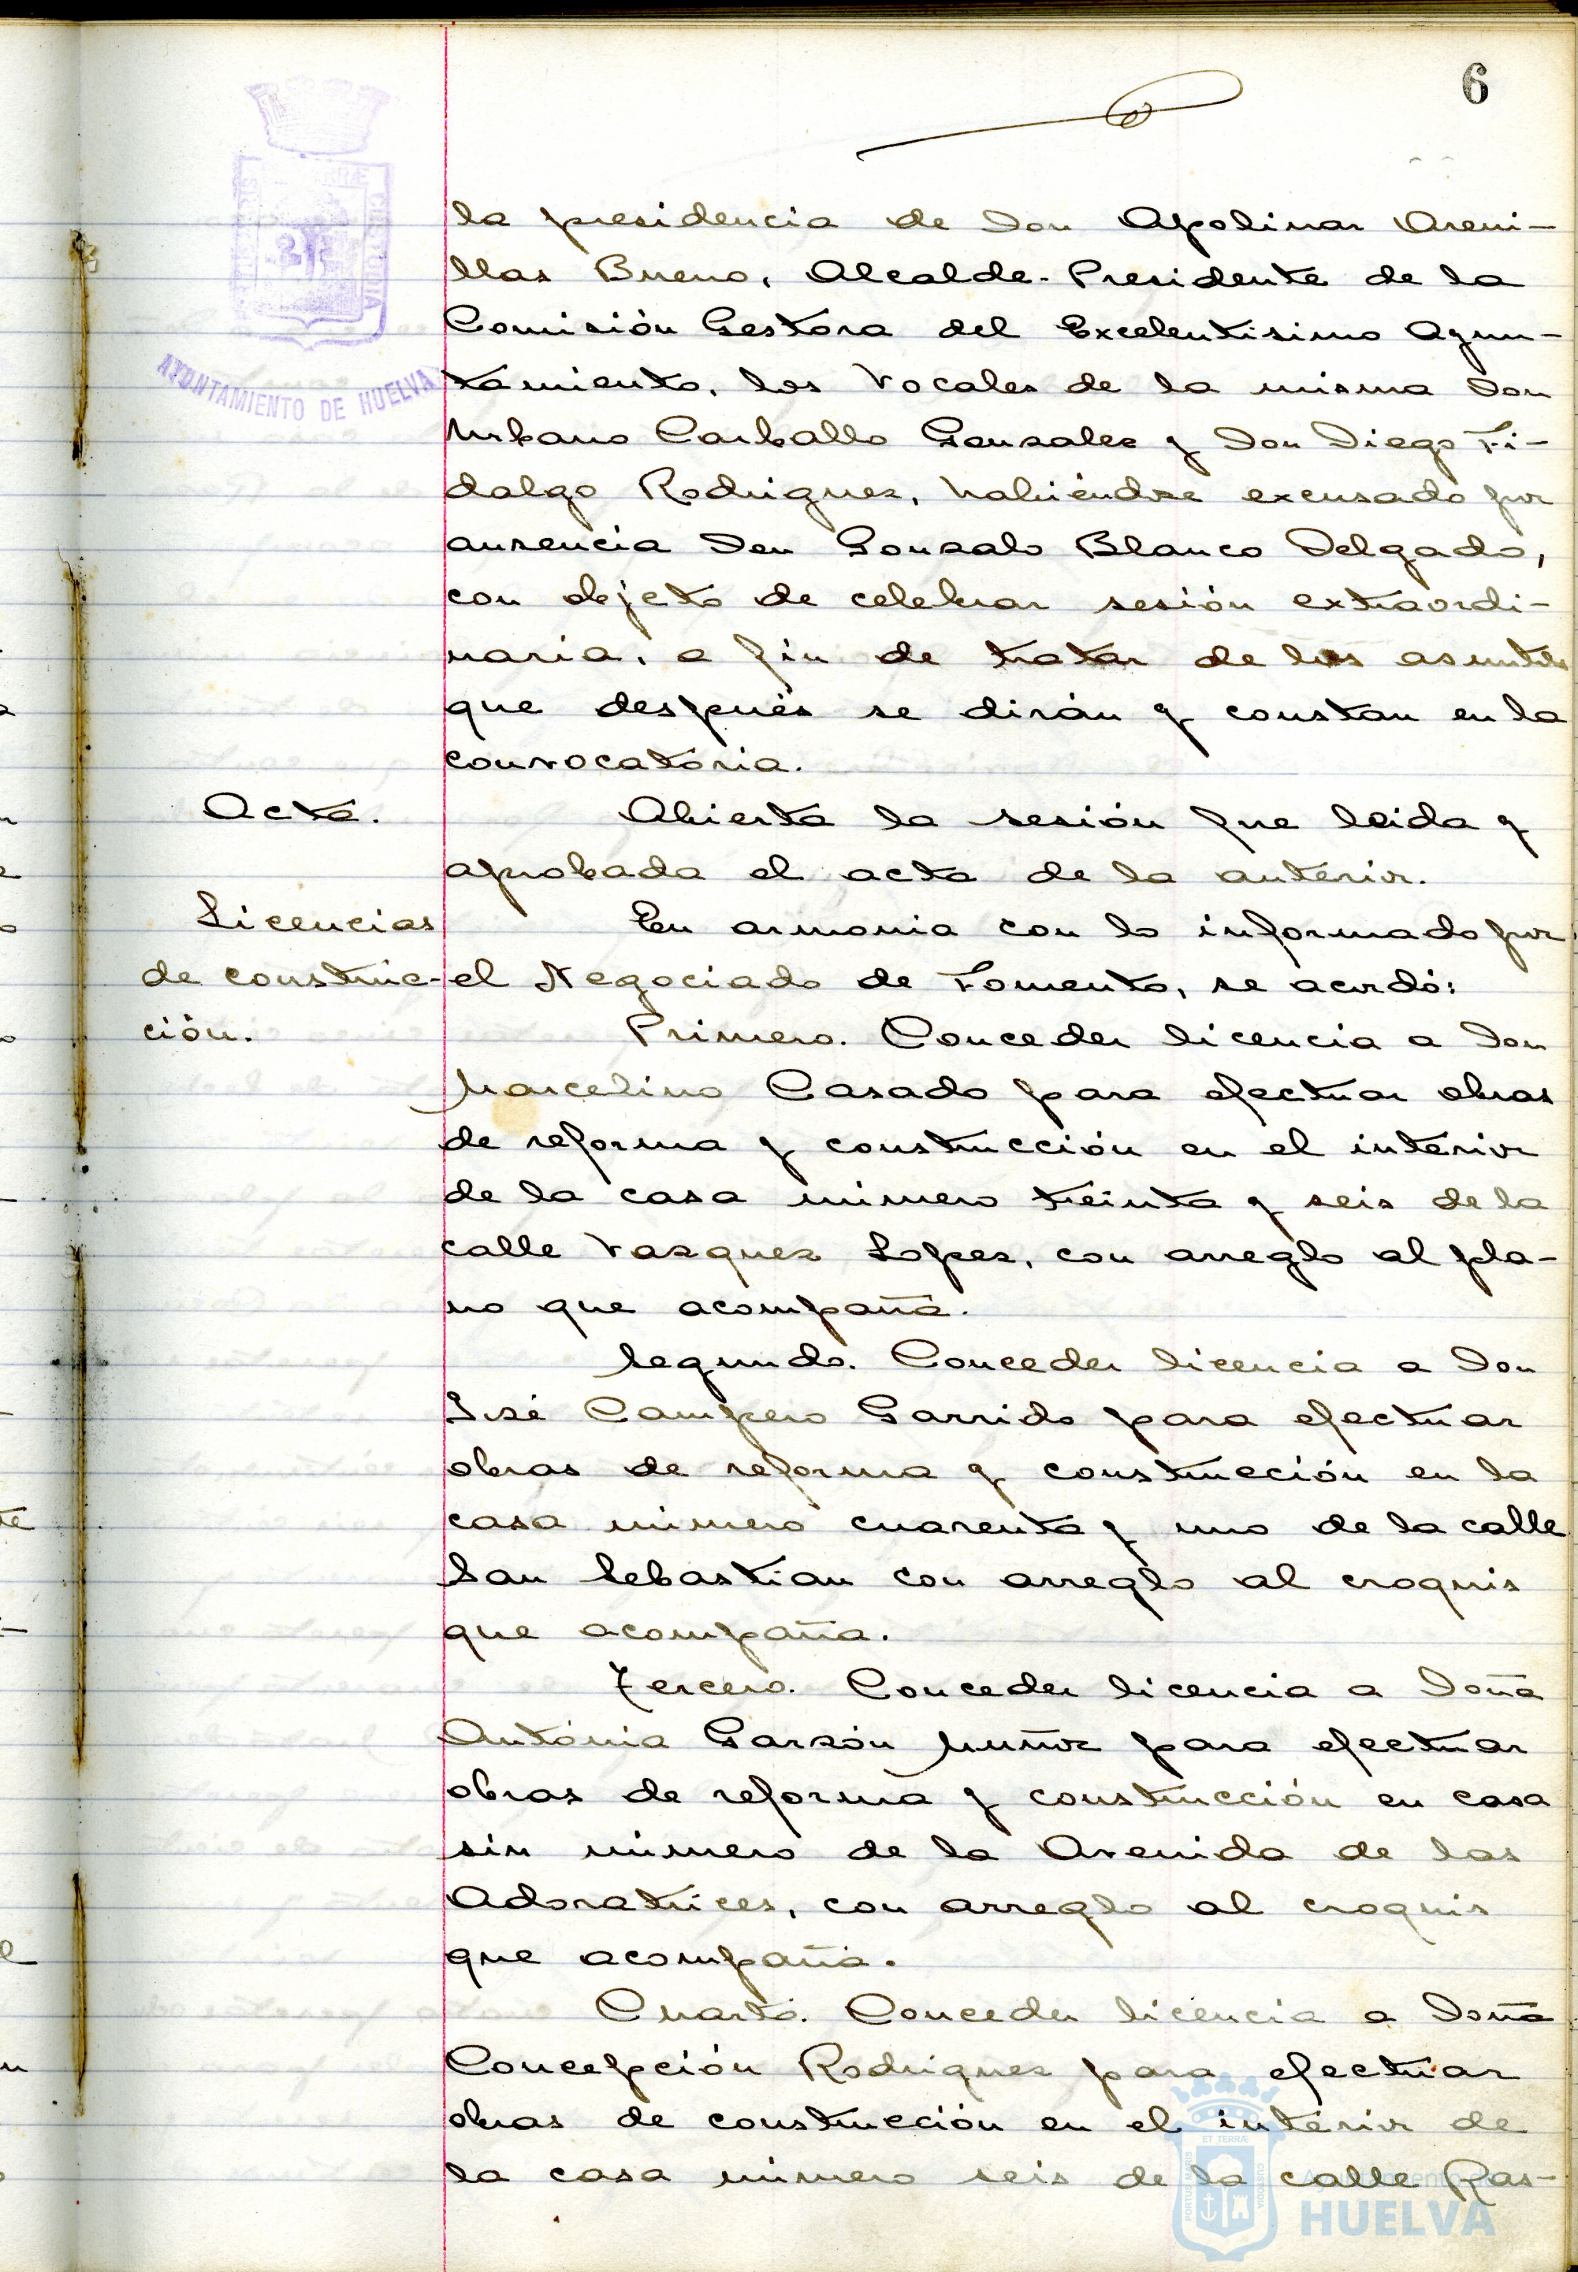 6
AYUNTAMIENTO DE HUELVA
la presidencia de Don Apolinar Areni-
llas Bueno, Alcalde-Presidente de la
Comisión Gestora del Excelentisimo Ayun-
tamiento, los Vocales de la misma Don
Urbano Carballo Gonzalez y Don Diego Fi-
dalgo Rodriguez, habiéndose excusado por
ausencia Don Gonzalo Blanco Delgado,
con objeto de celebrar sesión extraordi-
naria, a fin de tratar de los asuntos
que después se dirán y constan en la
convocatoria.
Acta.
Abierta la sesión fue leida y
aprobada el acta de la anterior.
Licencias
de construc-
ción.
En armonia con lo informado por
el Negociado de Fomento, se acordó:
Primero. Conceder licencia a Don
Marcelino Casado para efectuar obras
de reforma y construcción en el interior
de la casa número treinta y seis de la
calle Vazquez Lopez, con arreglo al pla-
no que acompaña.
Segundo. Conceder licencia a Don
José Campero Garrido para efectuar
obras de reforma y construcción en la
casa número cuarenta y uno de la calle
San Sebastian con arreglo al croquis
que acompaña.
Tercero. Conceder licencia a Doña
Antonia Garzón Muñoz para efectuar
obras de reforma y construcción en casa
sin número de la Avenida de las
Adoratrices, con arreglo al croquis
que acompaña.
Cuarto. Conceder licencia a Doña
Concepción Rodriguez para efectuar
obras de construcción en el interior de
la casa número seis de la calle Ras-
Ayuntamiento de
HUELVA
PORTUS MARIS
ET TERRÆ
CUSTODIA